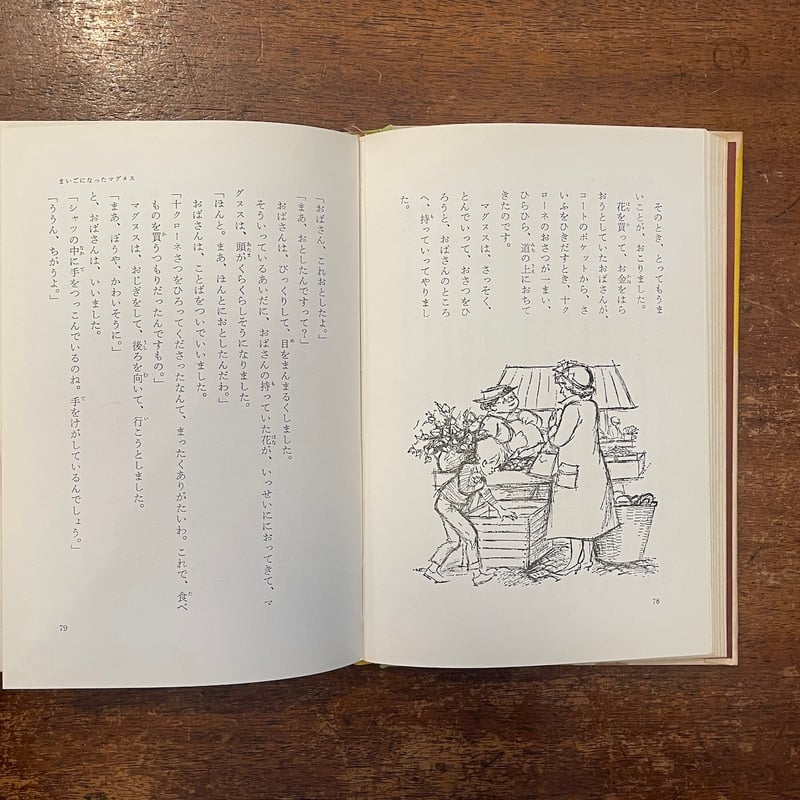 そのとき、とってもうま
いことが、おこりました。
花を買って、お金をはら
おうとしていたおばさんが、
コートのポケットから、さ
いふをひきだすとき、十ク
ローネのおさつが一まい、
ひらひら、道の上におちて
きたのです。
マグヌスは、さっそく、
とんでいって、おさつをひ
ろうと、おばさんのところ
へ、持っていってやりまし
た。
78
まいごになったマグヌス
「おばさん、これおとしたよ。」
「まあ、おとしたんですって？」
おばさんは、びっくりして、目をまんまるくしました。
そういっているあいだに、おばさんの持っていた花が、いっせいににおってきて、マ
グヌスは、頭がくらくらしそうになりました。
「ほんと。まあ、ほんとにおとしたんだわ。」
おばさんは、ことばをついでいいました。
「十クローネさつをひろってくださったなんて、まったくありがたいわ。これで、食べ
ものを買うつもりだったんですもの。」
マグヌスは、おじぎをして、後ろを向いて、行こうとしました。
「まあ、ぼうや、かわいそうに。」
と、おばさんは、いいました。
「シャツの中に手をつっこんでいるのね。手をけがしているんでしょう。」
「ううん、ちがうよ。」
79